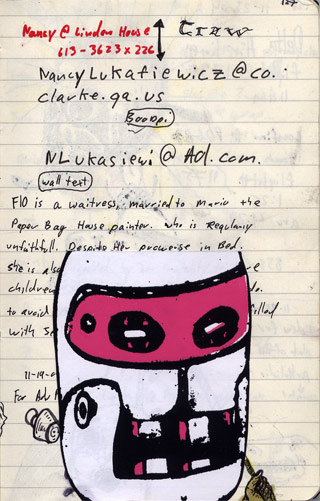 127
Nancy @ Linden House
613-3623 x 226
NancyLukafiewicz@co.
clarke.ga.us
NLukasiewi@Ad.com.
wall text
Flo is a waitress, married to mario the
Paper Bag House painter. who is Regulary
unfaithfull. Despite Her
in Bed.
she is also
children
to avoid
with
11-19-0
For Ad